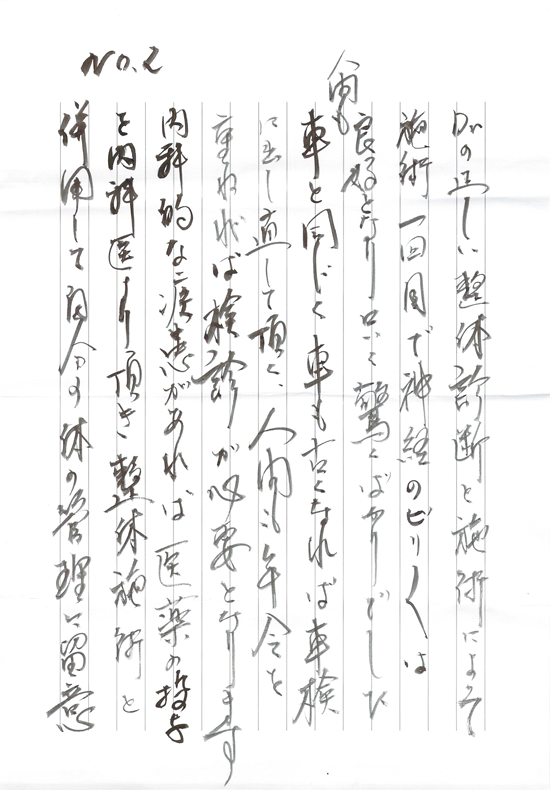 No.2
Drの正しい整体診断と施術によって
施術、一回目で神経のビリ〱は
良好となり日に驚くばかりでした
人間も
車と同じく車も古くなれば車検
に出し直して頂く、人間も年令を
重ねれば検診が必要となります
内科的な疾患があれば医薬の投与
を内科医より頂き整体施術と
併用して自分の体の管理に留意